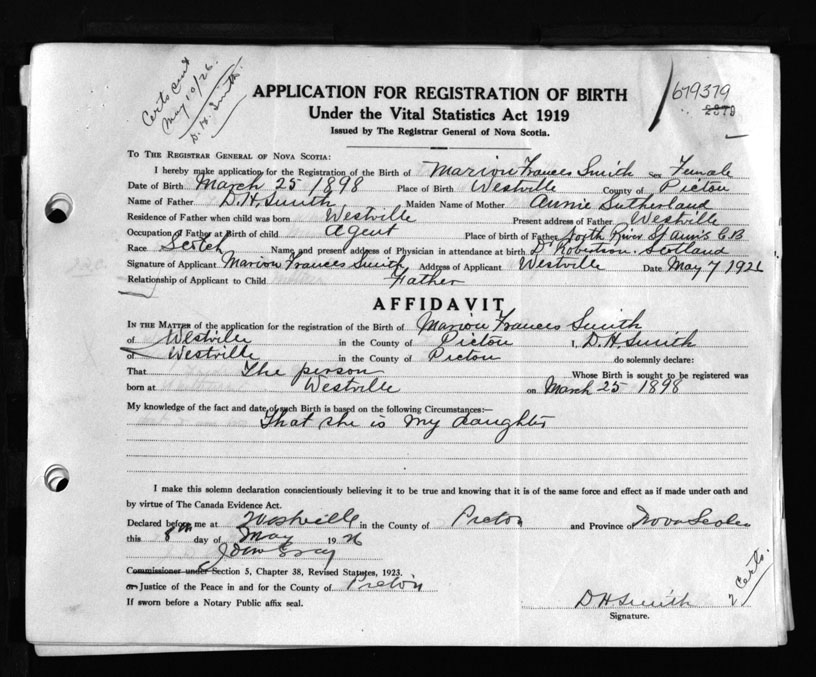 Certs sent
May 10/26.
D. H. Smith.
APPLICATION FOR REGISTRATION OF BIRTH
679379
2379
Under the Vital Statistics Act 1919
Issued by The Registrar General of Nova Scotia.
TO THE REGISTRAR GENERAL OF NOVA SCOTIA:
I hereby make application for the Registration of the Birth of Marion Frances Smith Sex Female
Date of Birth March 25 1898 Place of Birth Westville County of Pictou
Name of Father D. H. Smith Maiden Name of Mother Annie Sutherland
Residence of Father when child was born Westville Present address of Father Westville
Occupation of Father at Birth of child Agent Place of birth of Father North River St Ann's C B
Race Scotch Name and present address of Physician in attendance at birth Dr Robertson. Scotland
Signature of Applicant Marion Frances Smith Address of Applicant Westville Date May 7 1926
Relationship of Applicant to Child Father
AFFIDAVIT
IN THE MATTER of the application for the registration of the Birth of Marion Frances Smith
of Westville in the County of Pictou I, D. H. Smith
of Westville in the County of Pictou do solemnly declare:
That The person Whose Birth is sought to be registered was
born at Westville on March 25 1898
My knowledge of the fact and date of such Birth is based on the following Circumstances:—
That she is my daughter
I make this solemn declaration conscientiously believing it to be true and knowing that it is of the same force and effect as if made under oath and
by virtue of The Canada Evidence Act.
Declared before me at Westville in the County of Pictou and Province of Nova Scotia
this 8th day of May 1926
John Gray
Commissioner under Section 5, Chapter 38, Revised Statutes, 1923.
or Justice of the Peace in and for the County of Pictou
If sworn before a Notary Public affix seal.
D H Smith
Signature.
2 Certs.